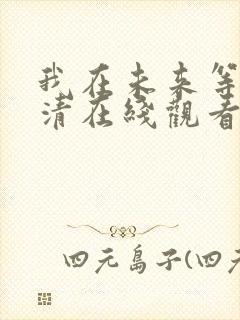 我在未来等
清在线观看
四元岛子(四元